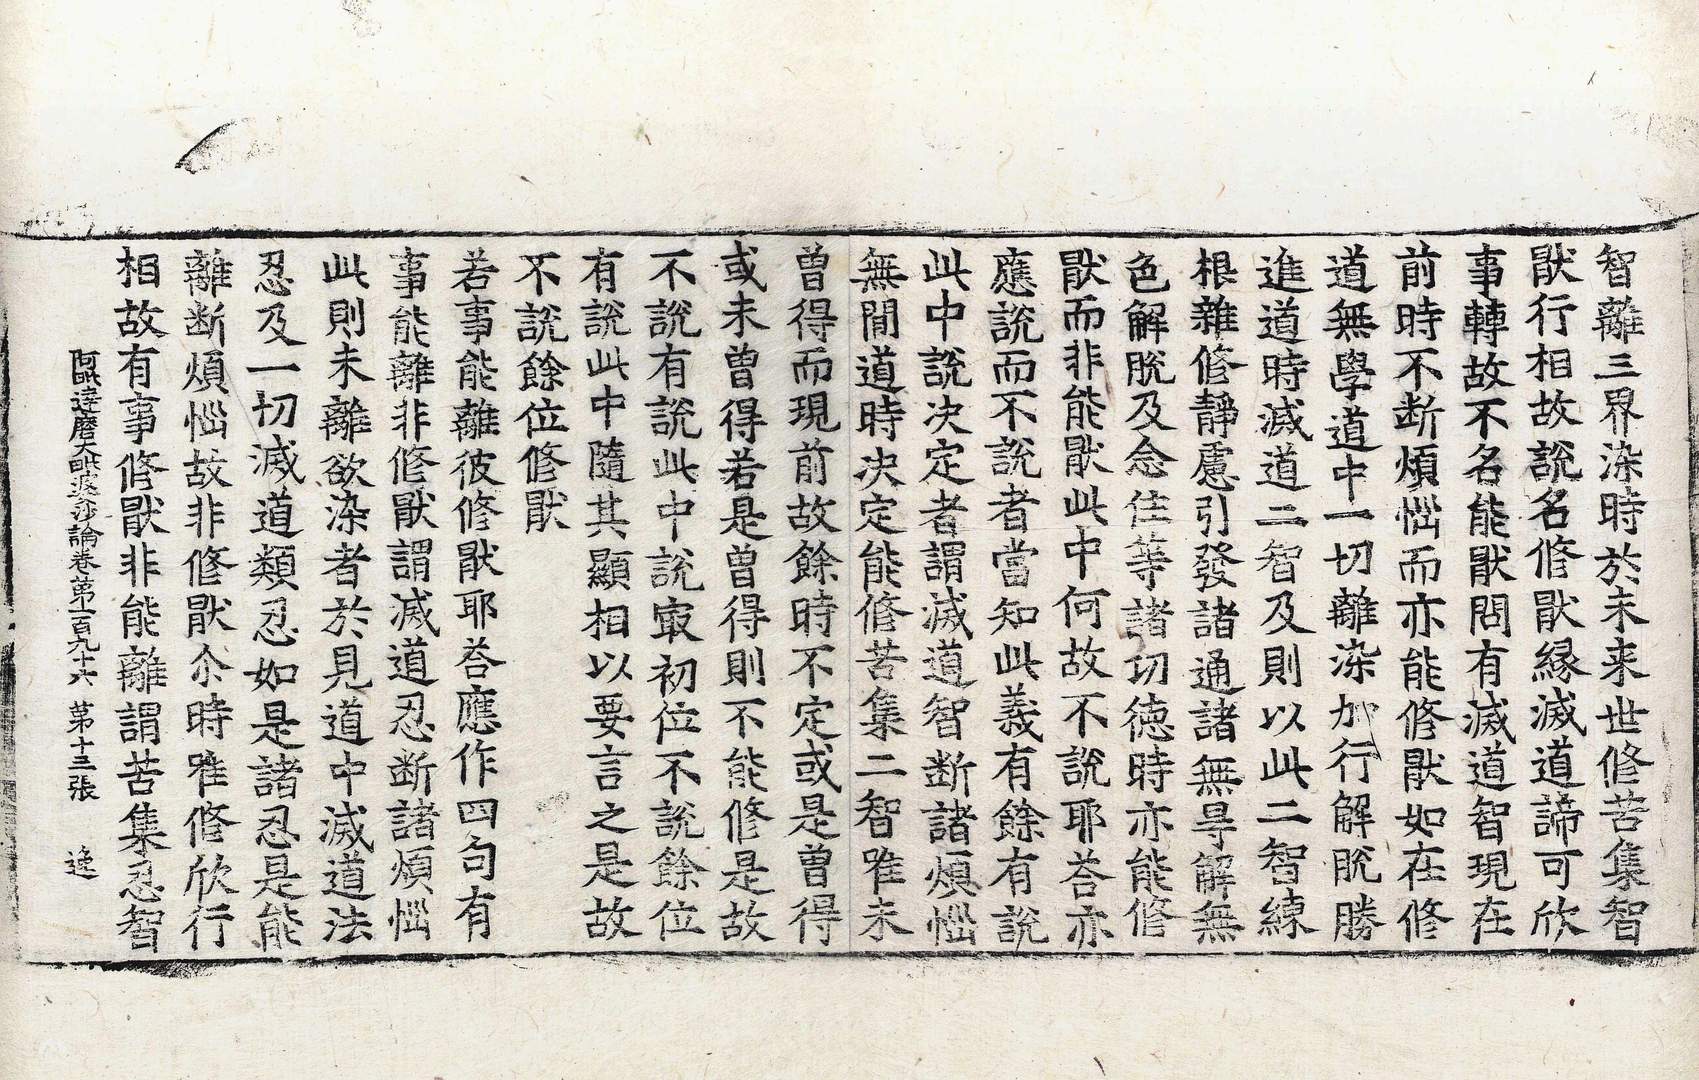 智離三界染時於未来世修苦集智
猒行相故說名修猒縁滅道諦可欣
事轉故不名能猒問有滅道智現在
前時不断煩惱而亦能修猒如在修
道無學道中一切離染加行解脫勝
進道時滅道二智及則以此二智練
根雜修靜慮引發諸通諸無㝵解無
色解脫及念住等諸切徳時亦能修
猒而非能猒此中何故不說耶荅亦
應說而不說者當知此義有餘有說
此中說决定者謂滅道智断諸煩惱
無間道時决定能修苦集二智唯未
曾得而現前故餘時不定或是曾得
或未曾得若是曾得則不能修是故
不說有說此中說㝡初位不說餘位
有說此中隨其顯相以要言之是故
不說餘位修猒
若事能離彼修猒耶荅應作四句有
事能離非修猒謂滅道忍断諸煩惱
此則未離欲染者於見道中滅道法
忍及一切滅道類忍如是諸忍是能
離断煩惱故非修猒尒時唯修欣行
相故有事修猒非能離謂苦集忍智
阿毗達磨大毗婆沙論卷第一百九十六 第十三張 逸